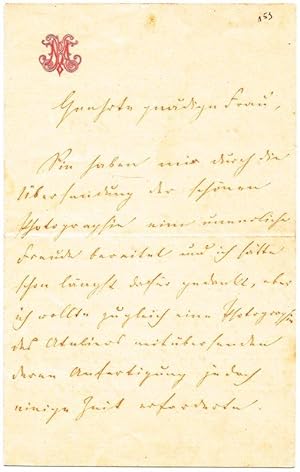 153
Geehrte gnädige Frau,
Sie haben mir durch die
Übersendung der schönen
Photographie eine unendliche
Freude bereitet und ich hätte
schon längst dafür gedankt, aber
ich wollte zugleich eine Photographie
des Ateliers mitübersenden
deren Anfertigung jedoch
einige Zeit erforderte.